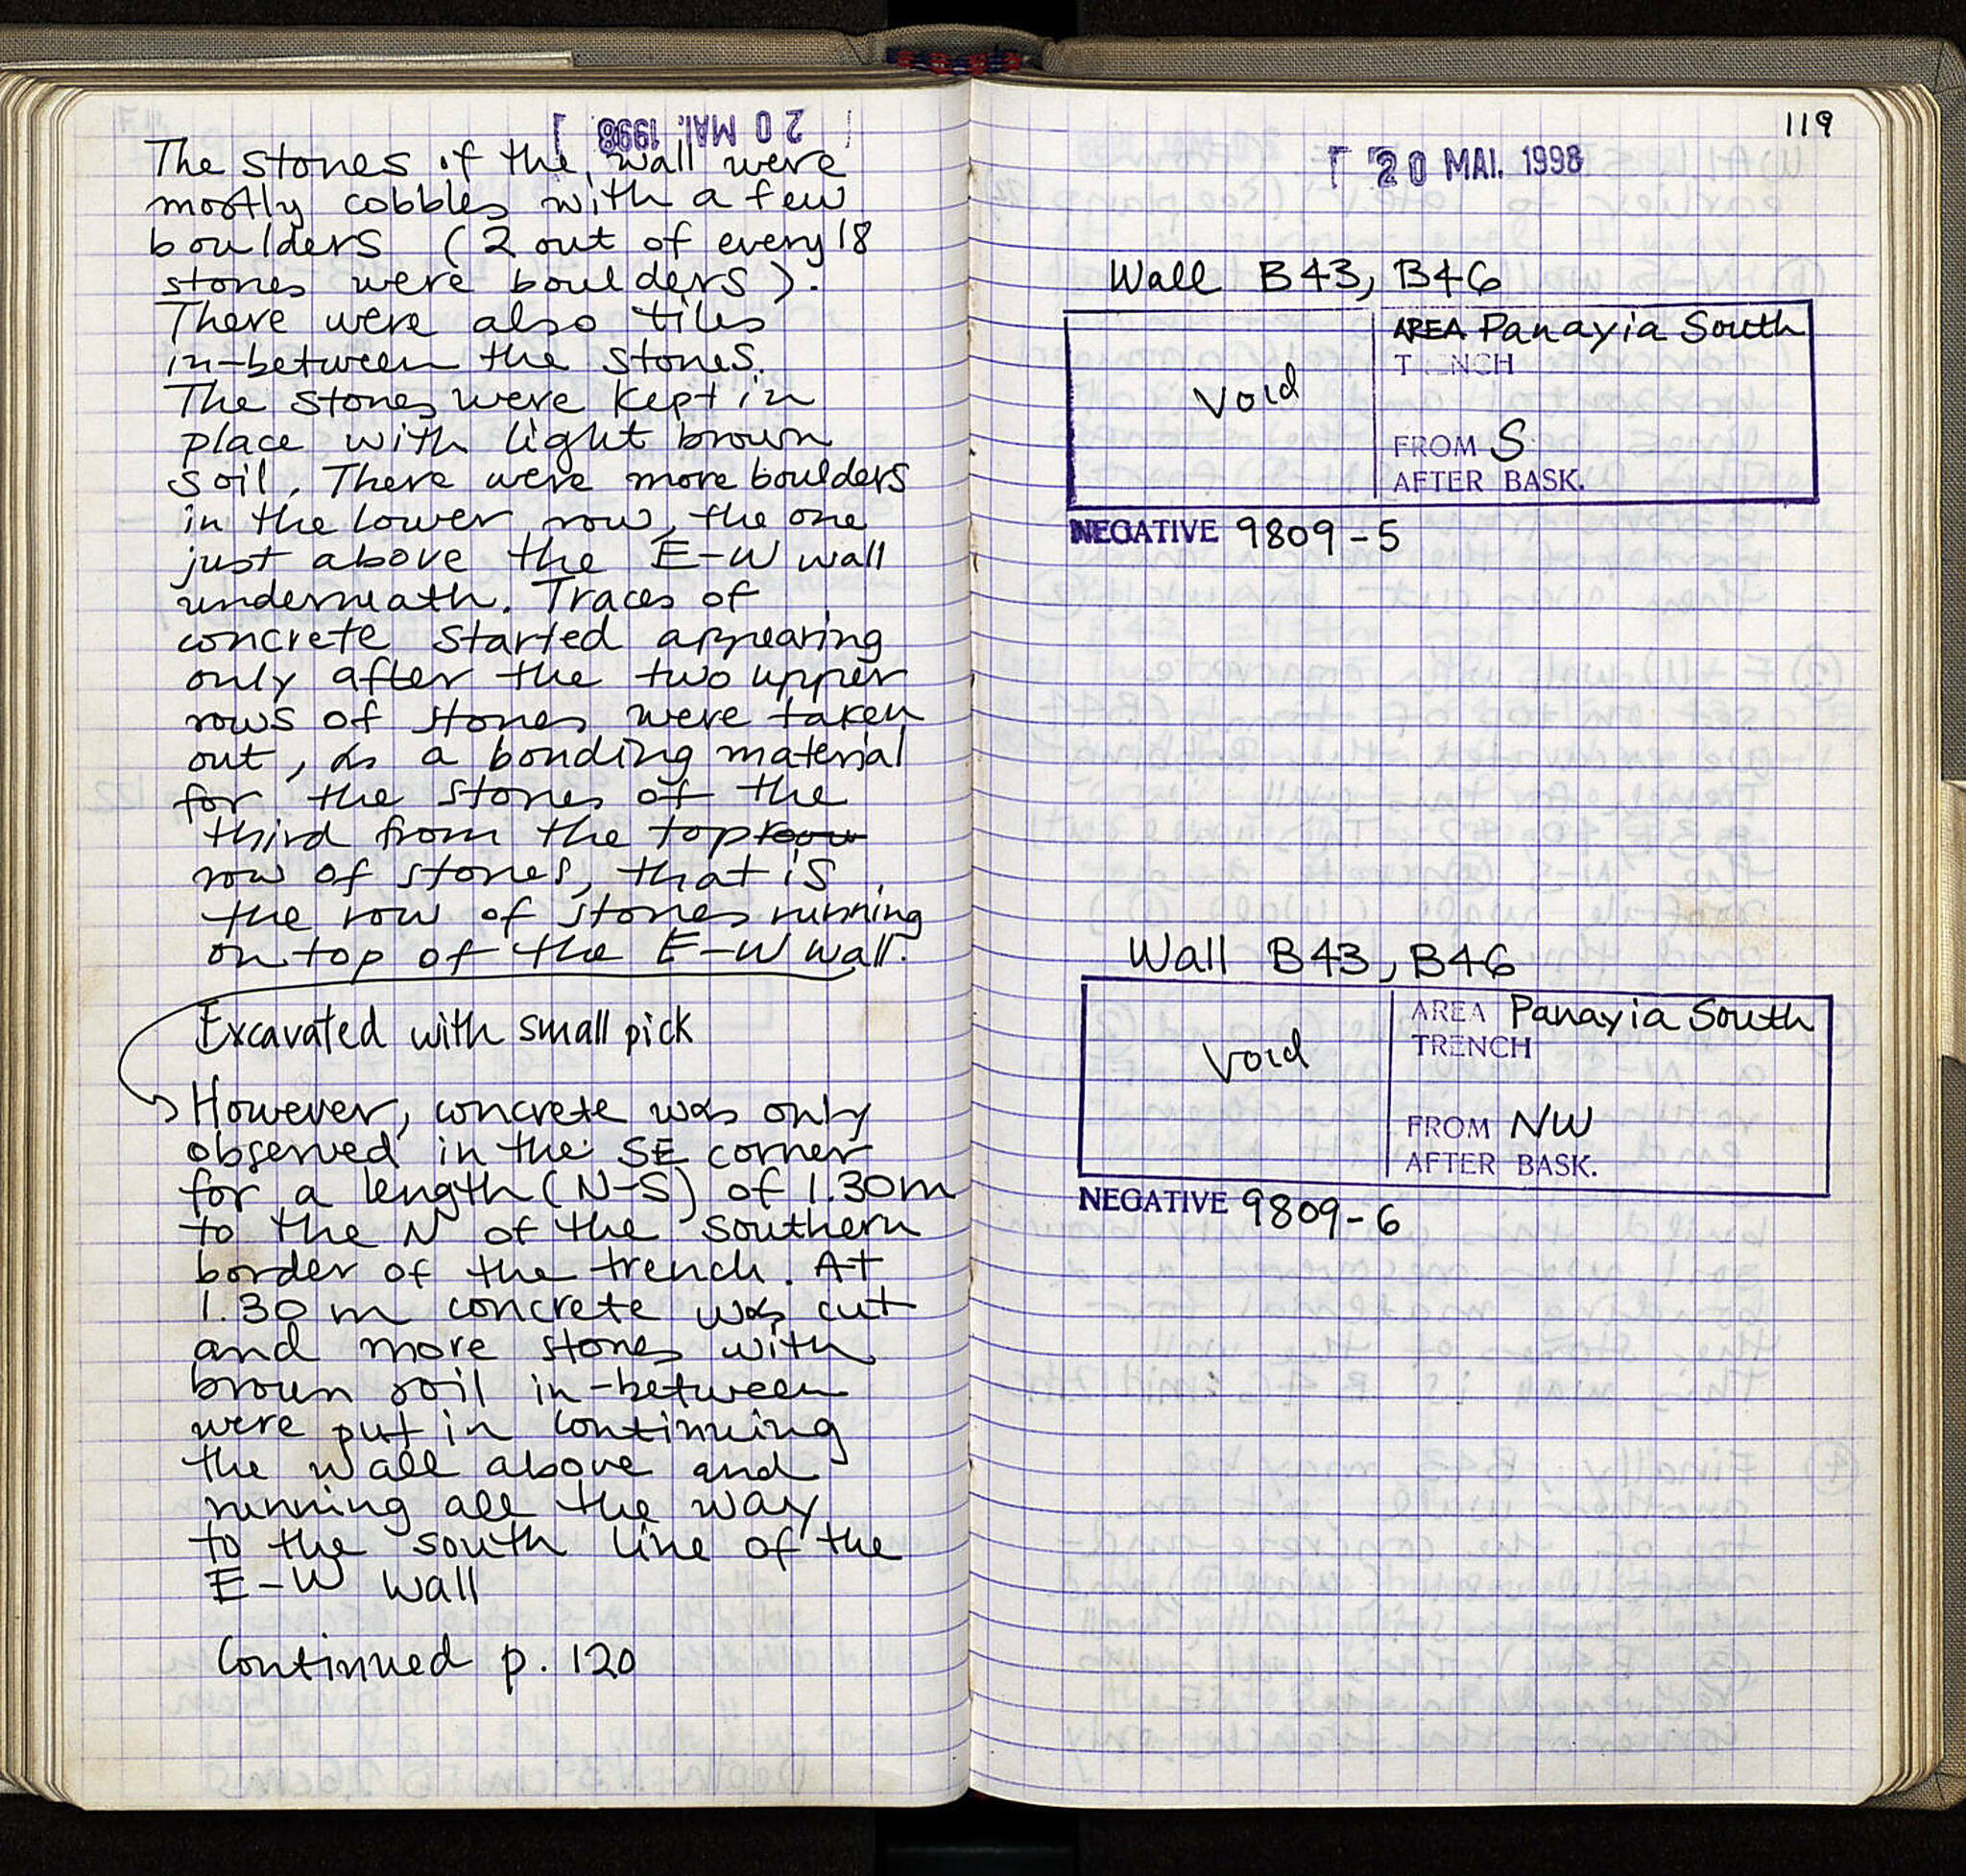 20 MAI. 1998
The stones of the wall were
mostly cobbles with a few
boulders (2 out of every 18
stones were boulders).
There were also tiles
in-between the stones.
The stones were kept in
place with light brown
soil. There were more boulders
in the lower row, the one
just above the E-W wall
underneath. Traces of
concrete started appearing
only after the two upper
rows of stones were taken
out, as a bonding material
for the stones of the
third from the top row
row of stones, that is
the row of stones running
on top of the E-W wall.
Excavated with small pick
However, concrete was only
observed in the SE corner
for a length (N-S) of 1.30m
to the N of the southern
border of the trench. At
1.30 m concrete was cut
and more stones with
brown soil in-between
were put in continuing
the wall above and
running all the way
to the south line of the
E-W wall
Continued p. 120
119
20 MAI. 1998
Wall B43, B46
AREA Panayia South
TRENCH
Void
FROM S
AFTER BASK.
NEGATIVE 9809-5
Wall B43, B46
AREA Panayia South
TRENCH
Void
FROM NW
AFTER BASK.
NEGATIVE 9809-6